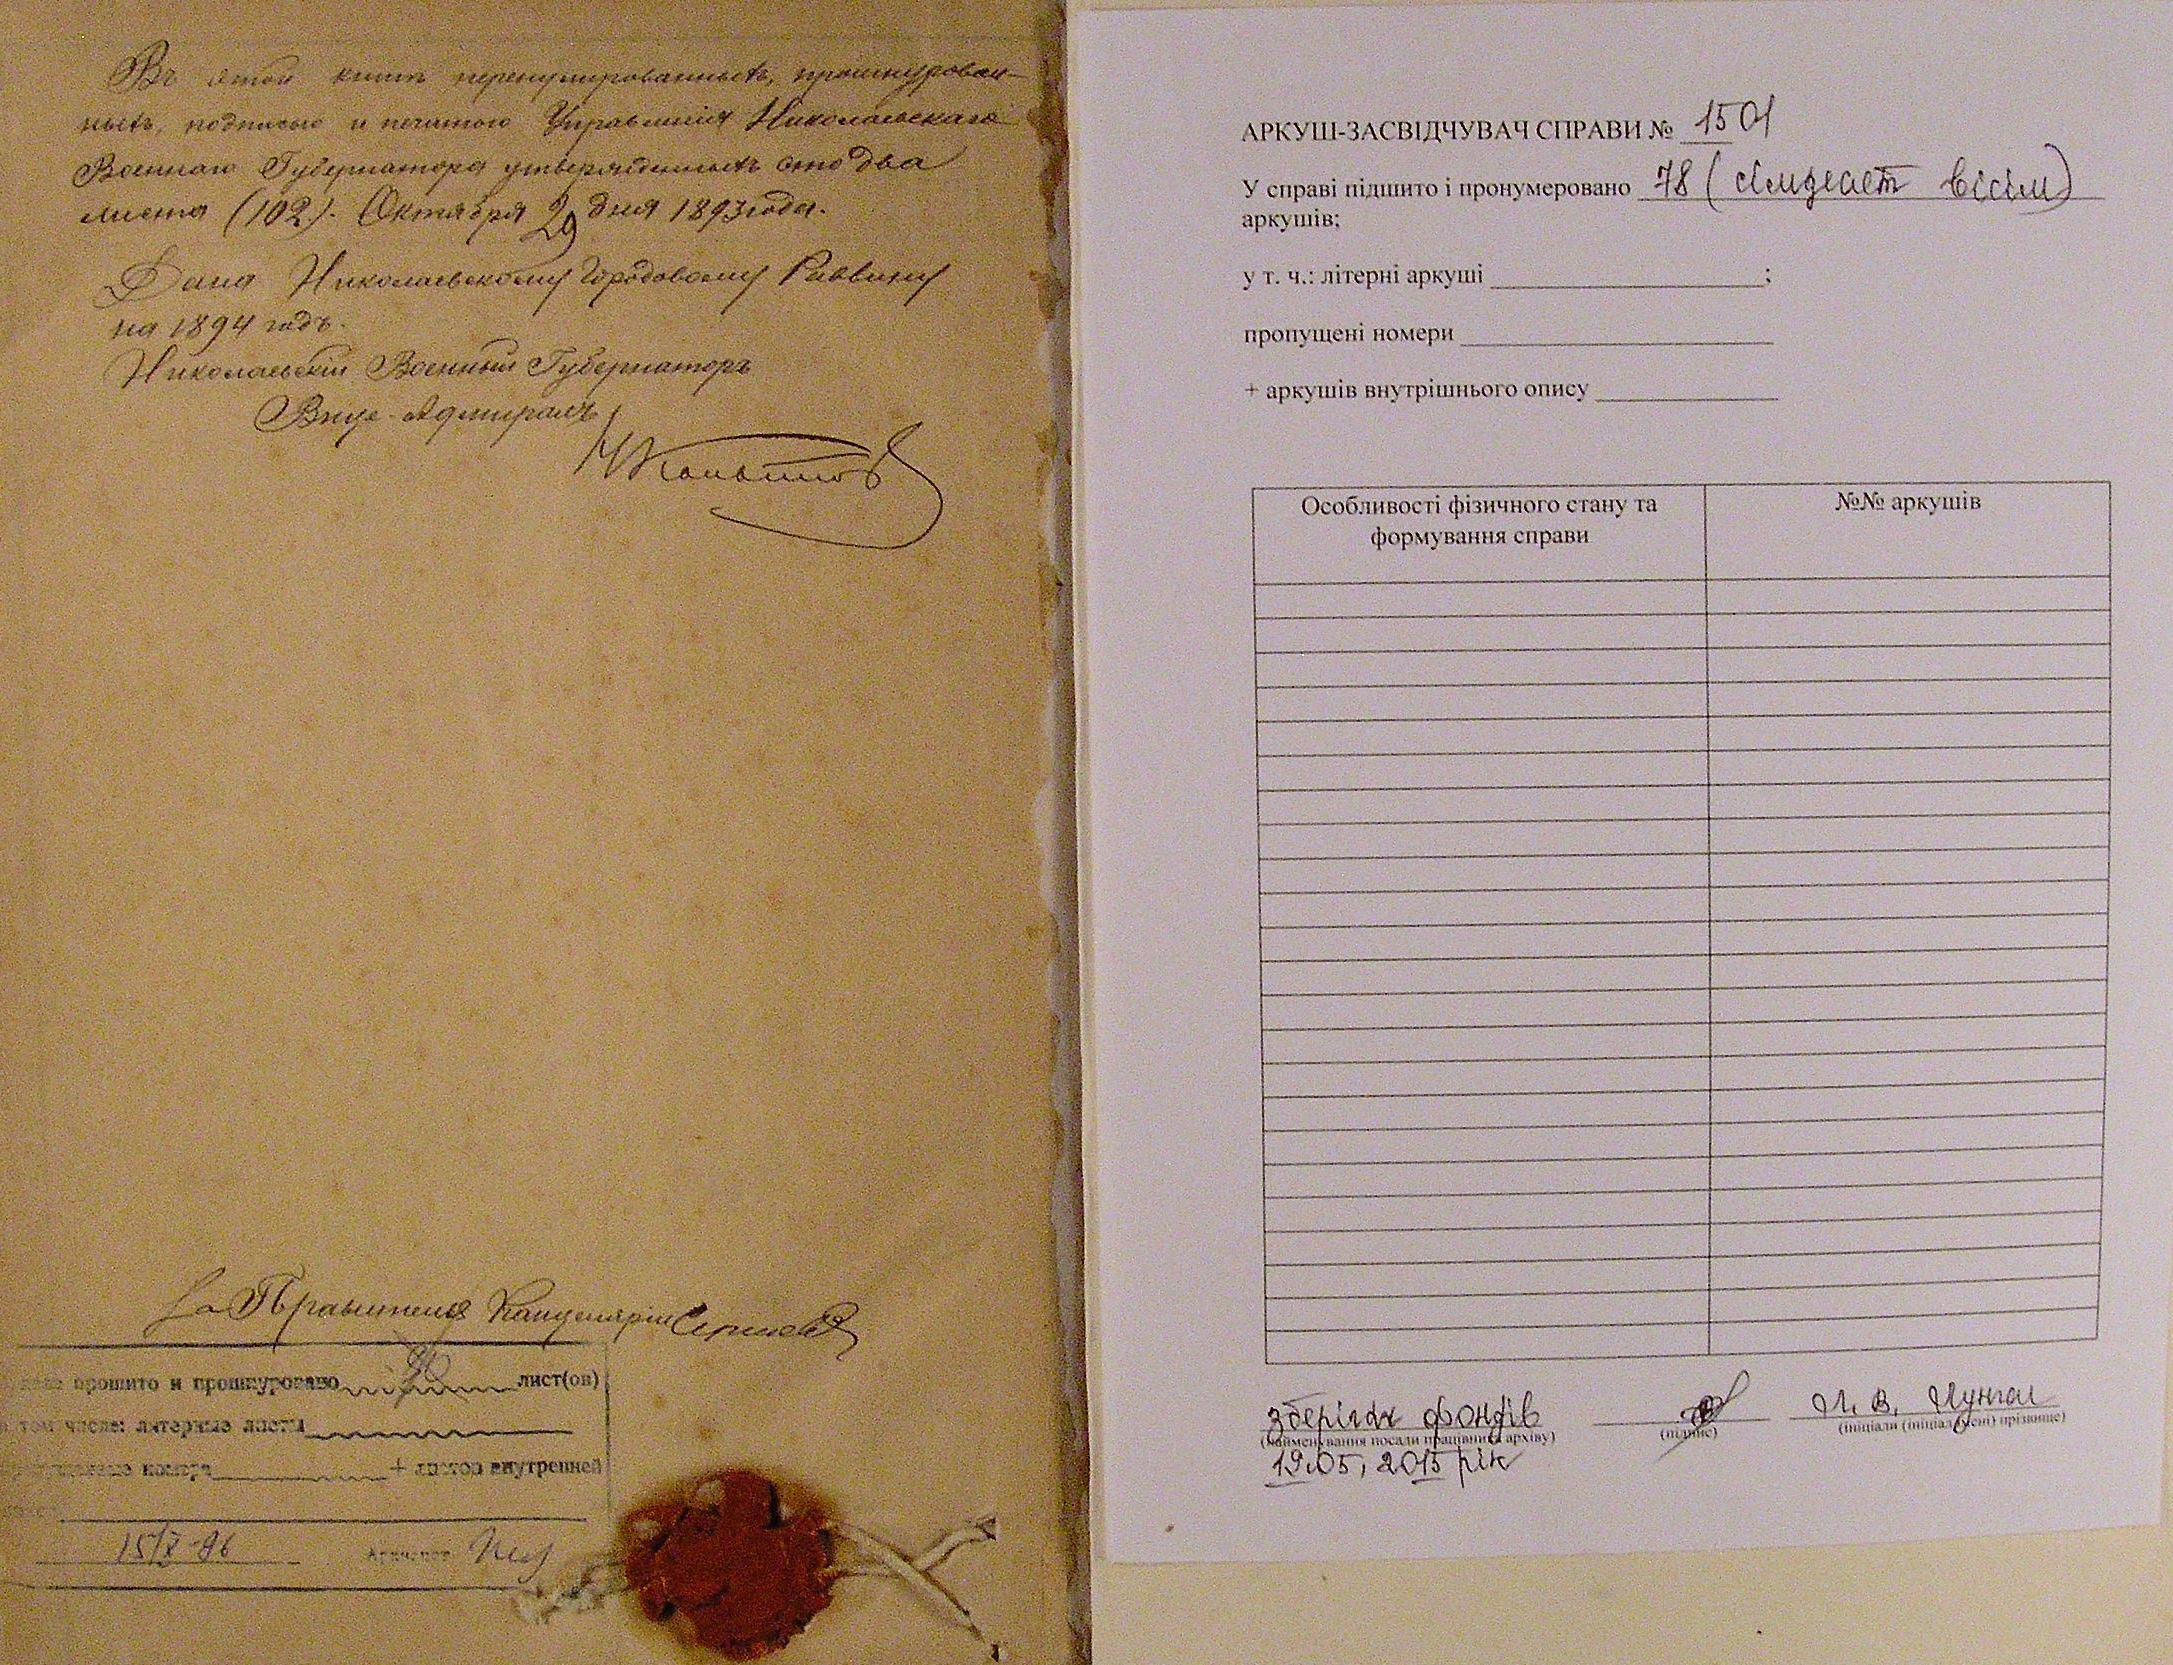 Въ этой книгѣ перенумерованныхъ, прошнурован-
ныхъ, подписью и печатью Управленія Николаевскаго
Военнаго Губернатора утвержденныхъ сто два
листа (102). Октября 29 дня 1893 года.
Дана Николаевскому Городовому Раввину
на 1894 годъ.
Николаевскій Военный Губернаторъ
Вице-Адмиралъ
За Правителя Канцеляріи Сергѣевъ
прошито и прошнуровано лист(ов)
том числе: литерные листы
номера + листов внутренней
15/X-86
АРКУШ-ЗАСВІДЧУВАЧ СПРАВИ № 1501
У справі підшито і пронумеровано 78 (сімдесят вісім)
аркушів;
у т. ч.: літерні аркуші ;
пропущені номери
+ аркушів внутрішнього опису
Особливості фізичного стану та
формування справи
№№ аркушів
зберігач фондів
(найменування посади працівника архіву)
(підпис)
(ініціали (ініціал імені) прізвище)
19.05, 2015 рік